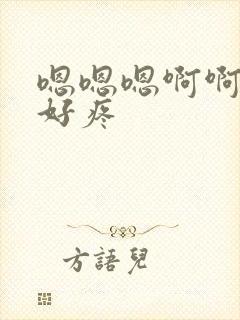 嗯嗯嗯啊啊
好疼
方語兒